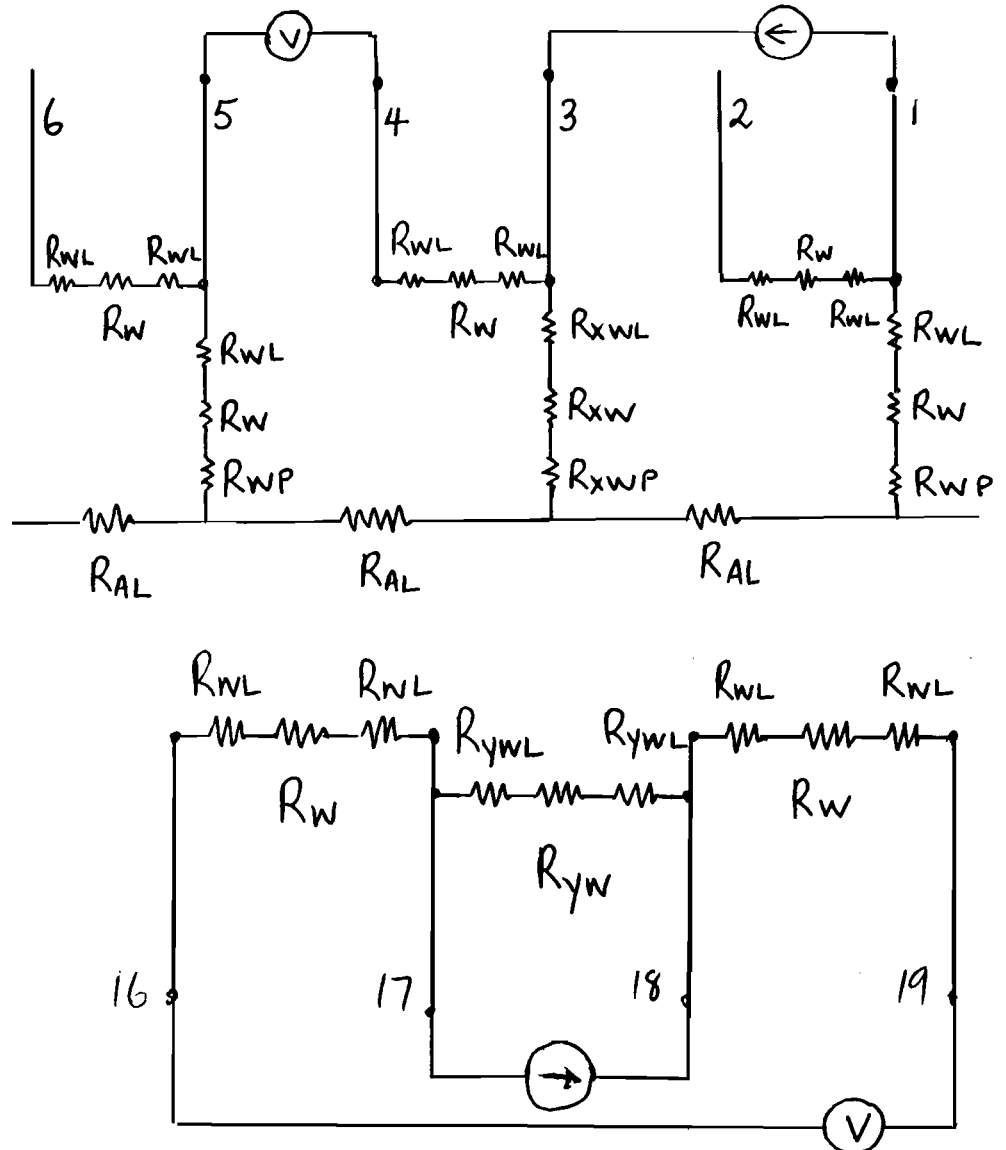 V
6 5 4 3 2 1
RWL RWL RWL RWL RW
RW RW RWL RWL
RWL RXWL RWL
RW RXW RW
RWP RXWP RWP
RAL RAL RAL
RWL RWL RWL RWL
RYWL RYWL
RW RW
RYW
16 17 18 19
V